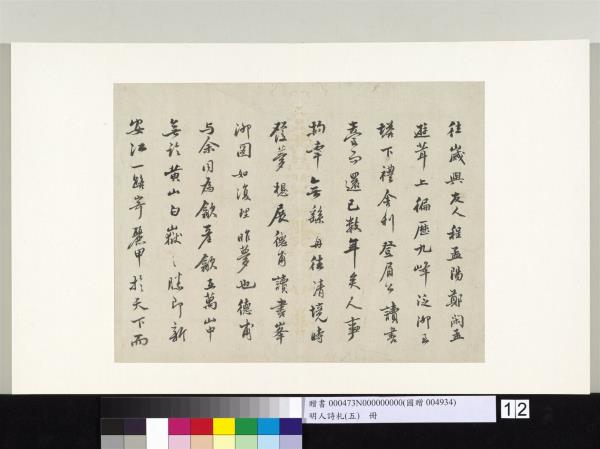 往歲與友人程孟陽鄭閑孟
遊茸上徧歷九峰泛泖
塔下禮舍利登眉公讀書
臺而還已數年矣人事
拘牽無繇再往清境時
發夢想展德甫讀書峯
泖圖如復理昨夢也德甫
与余同為歙產歙在萬山中
無論黃山白嶽之勝即新
安江一路奇麗甲於天下而
贈書 000473N000000000(國贈 004934)
明人詩札(五) 冊
12